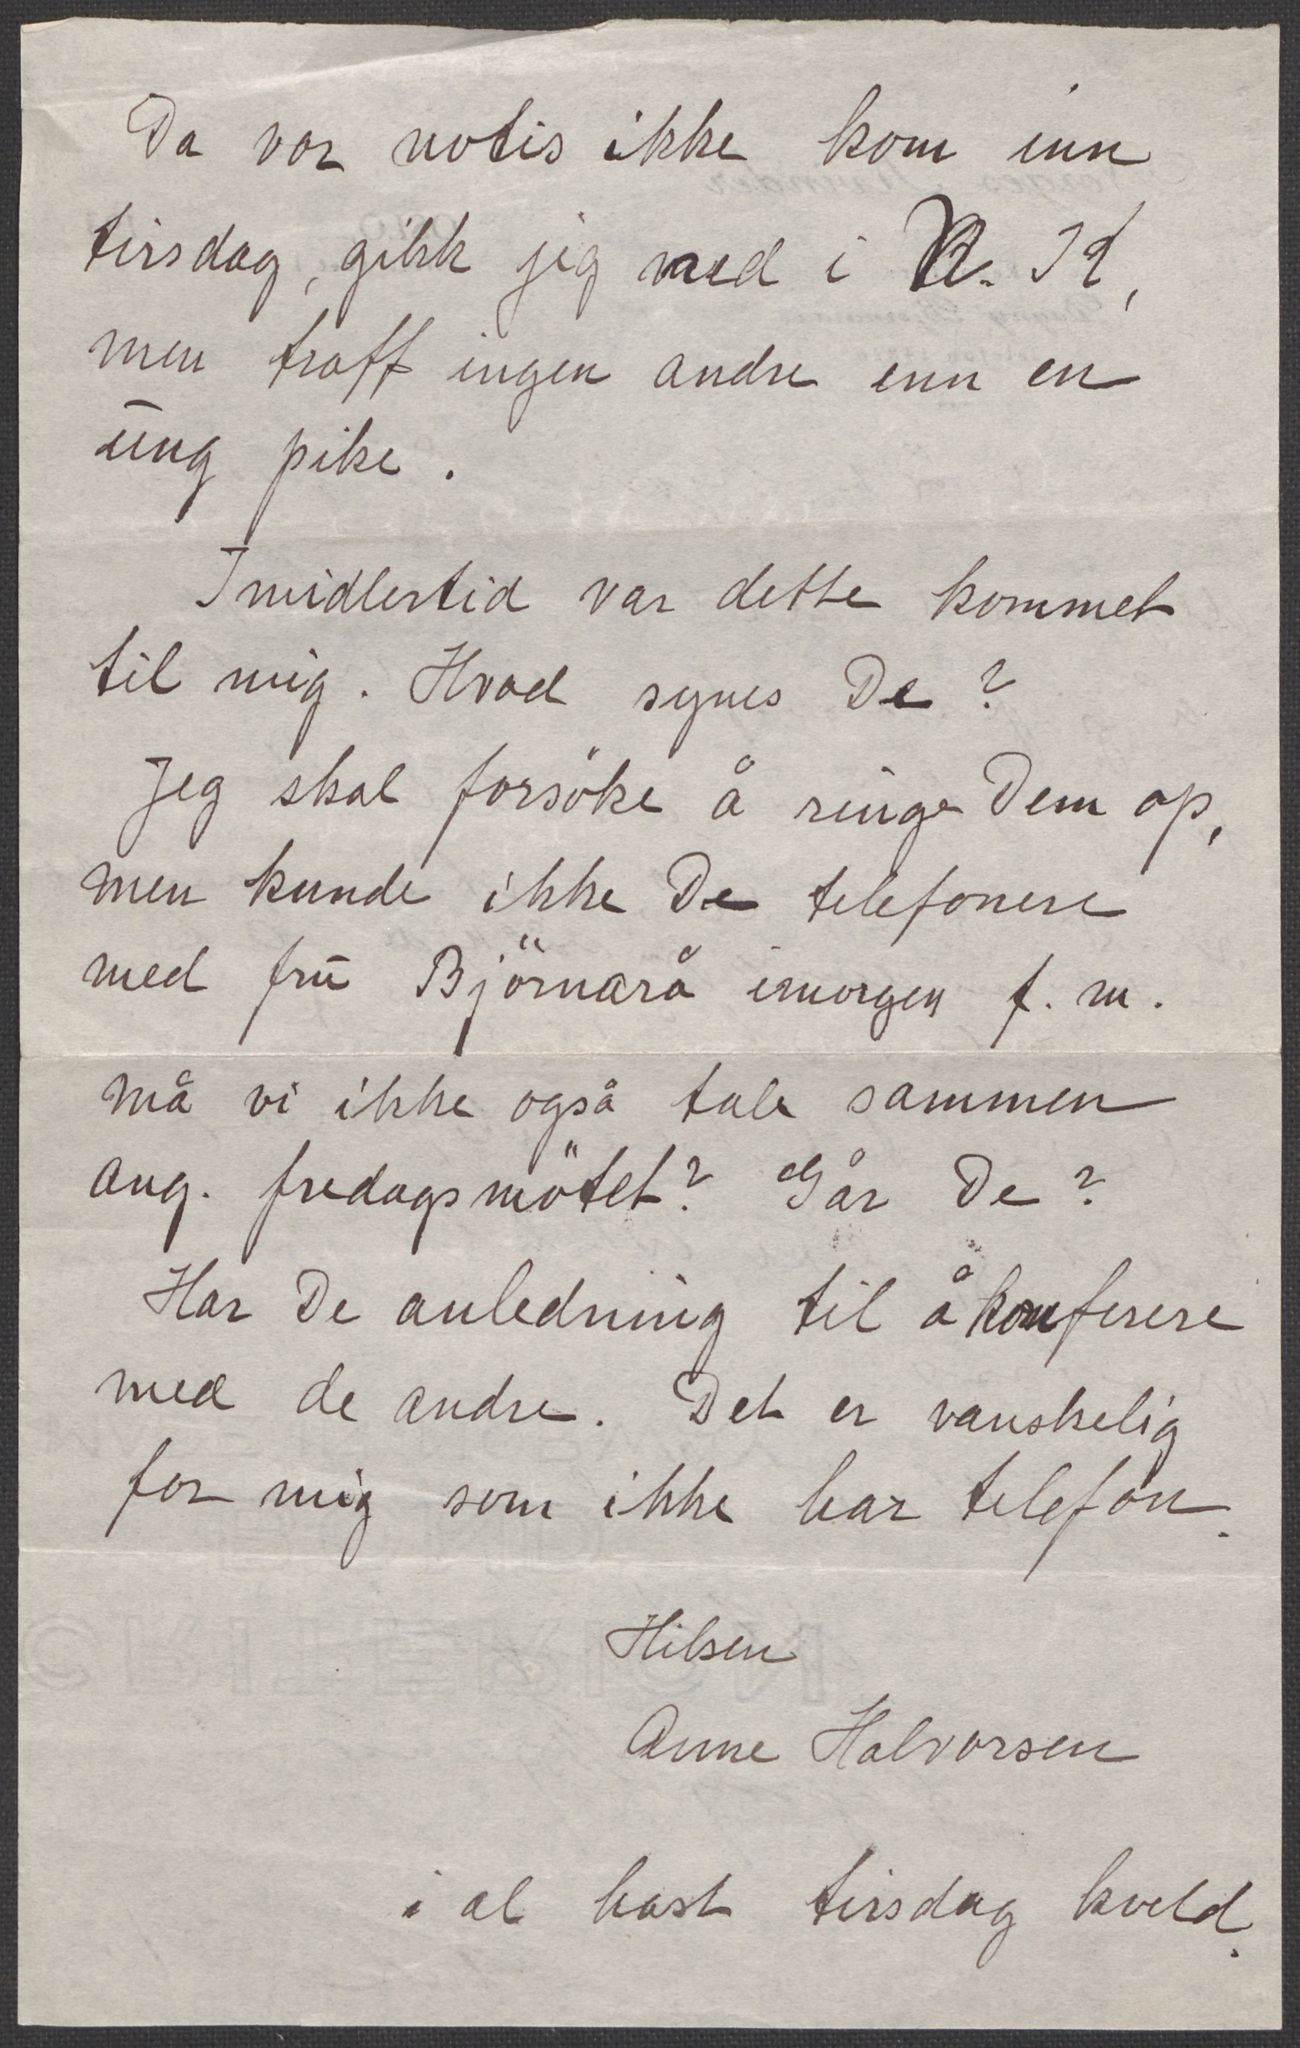 Da vor notis ikke kom inn
tirsdag, gikk jeg ned i
men traff ingen andre enn en
ung pike.
Imidlertid var dette kommet
til mig. Hvad synes De?
Jeg skal forsöke å ringe Dem op,
men kunde ikke De telefonere
med fru Björnarå imorgen f. m.
må vi ikke også tale sammen
ang. fredagsmötet? Går De?
Har De anledning til å konferere
med de andre. Det er vanskelig
for mig som ikke har telefon.
Hilsen
Anne Halvorsen
i al hast tirsdag kveld.